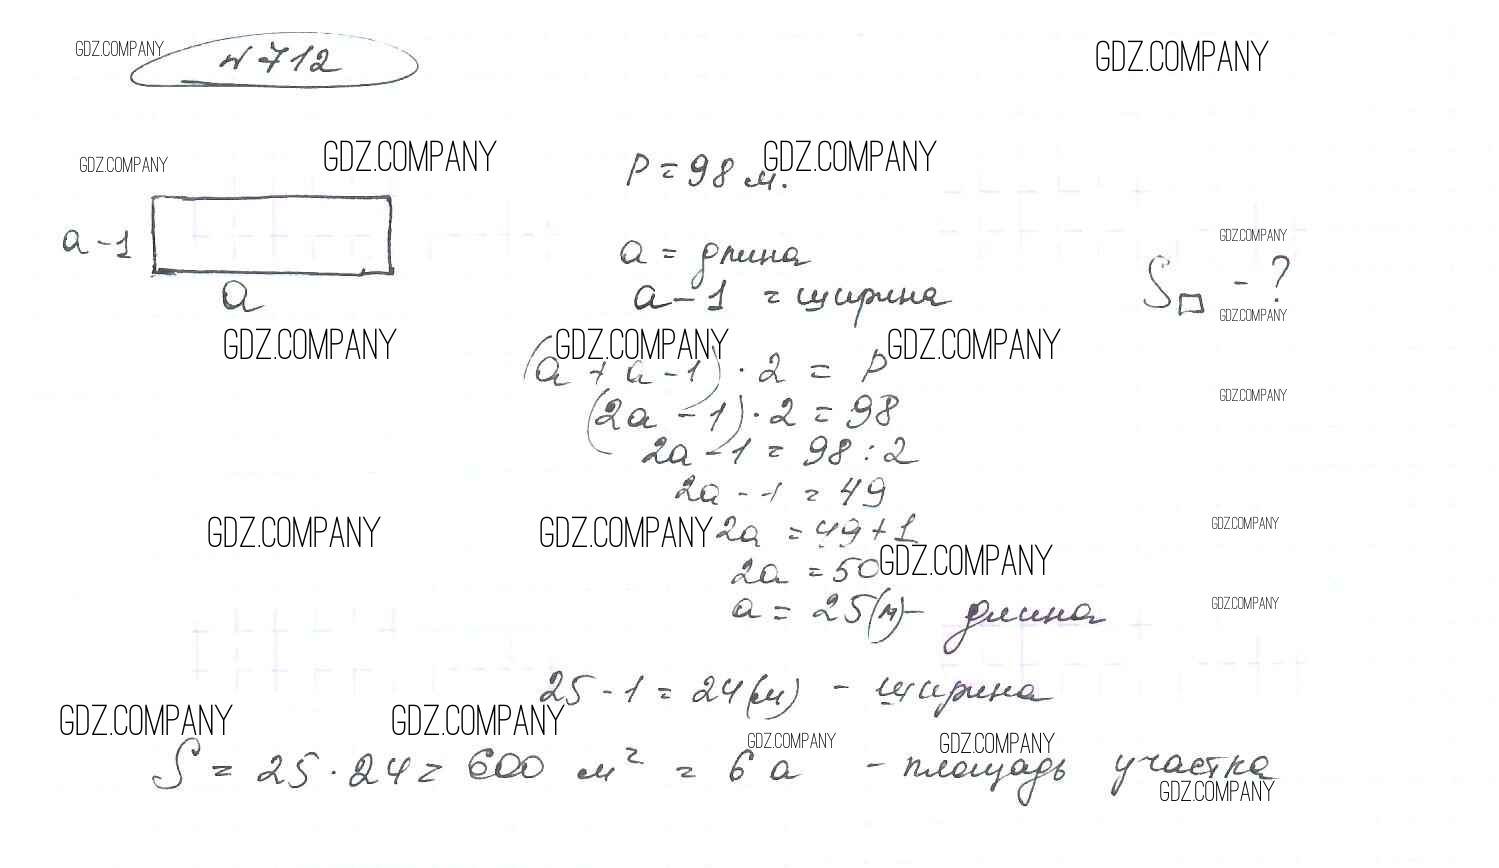 GDZ.COMPANY
№712
GDZ.COMPANY
GDZ.COMPANY
GDZ.COMPANY
GDZ.COMPANY
P = 98 м.
a - 1
a
a = длина
a - 1 = ширина
S□ - ?
GDZ.COMPANY
GDZ.COMPANY
GDZ.COMPANY
GDZ.COMPANY
GDZ.COMPANY
(a + a - 1) · 2 = P
GDZ.COMPANY
(2a - 1) · 2 = 98
2a - 1 = 98 : 2
2a - 1 = 49
GDZ.COMPANY
GDZ.COMPANY
2a = 49 + 1
GDZ.COMPANY
2a = 50
GDZ.COMPANY
a = 25 (м) - длина
GDZ.COMPANY
25 - 1 = 24 (м) - ширина
GDZ.COMPANY
GDZ.COMPANY
GDZ.COMPANY
GDZ.COMPANY
S = 25 · 24 = 600 м² = 6 a - площадь участка
GDZ.COMPANY